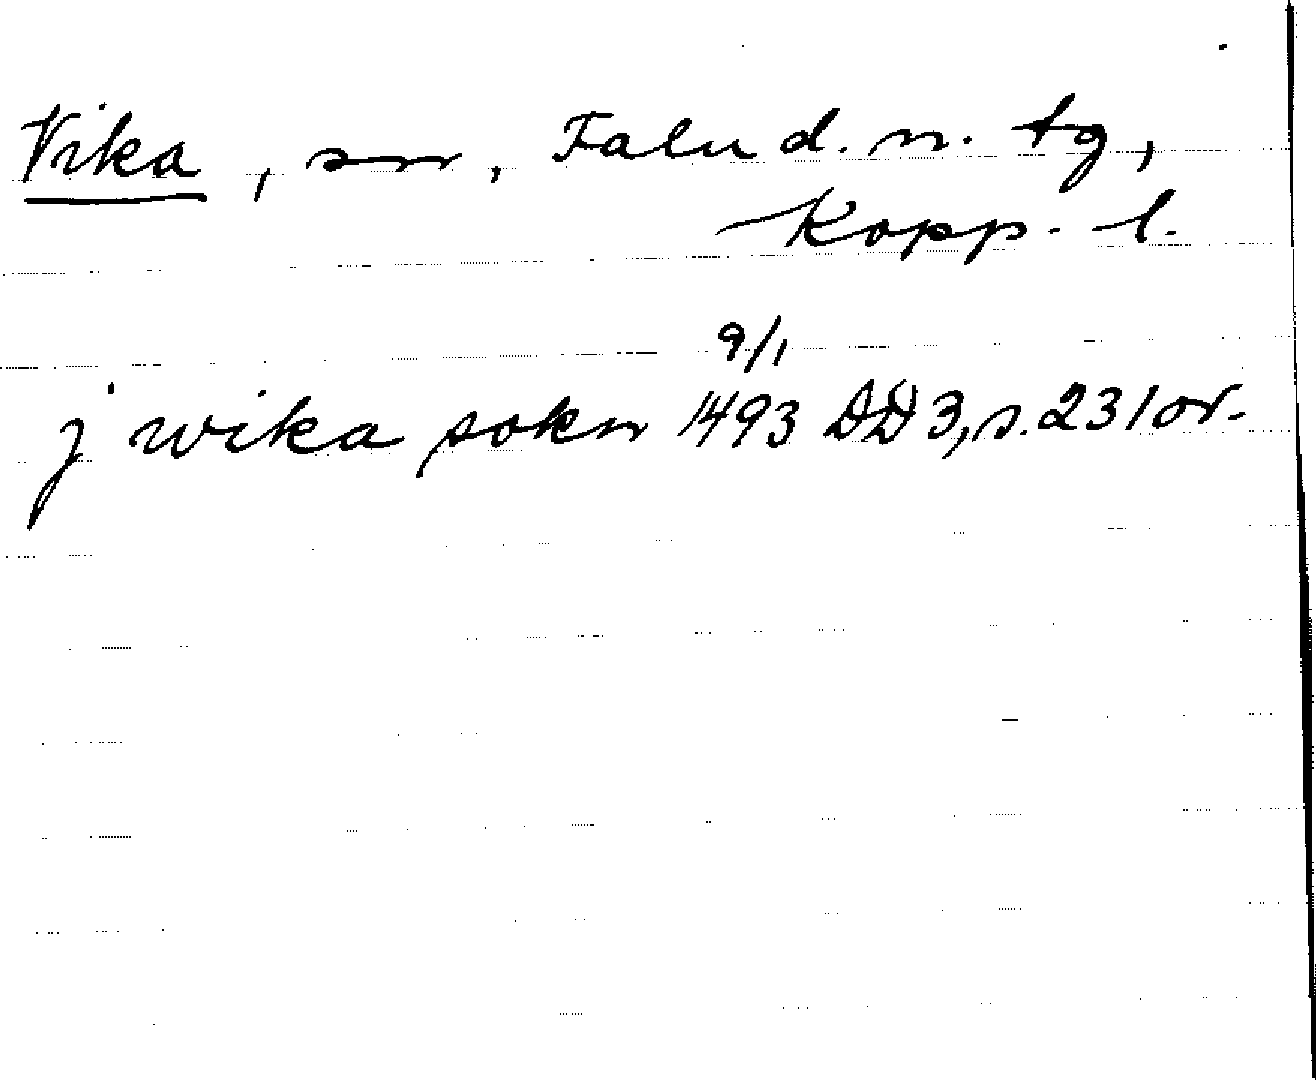 Vika, sn, Falu d. n. tg,
Kopp. l.
9/1
j wika sokn 1493 DD 3, s. 231 or.